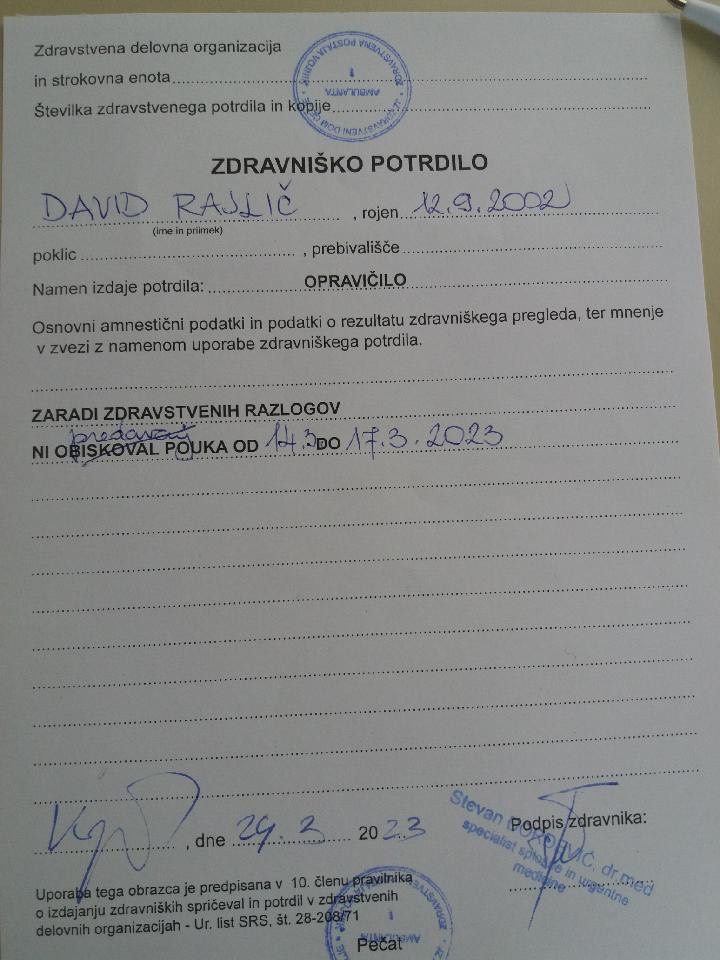 Zdravstvena delovna organizacija
in strokovna enota
ZDRAVSTVENA POSTAJA VOJNIK
AMBULANTA
1
JZ ZDRAVSTVENI DOM CELJE
Številka zdravstvenega potrdila in kopije
ZDRAVNIŠKO POTRDILO
DAVID RAJLIČ, rojen 12.9.2002
(ime in priimek)
poklic, prebivališče
Namen izdaje potrdila: OPRAVIČILO
Osnovni amnestični podatki in podatki o rezultatu zdravniškega pregleda, ter mnenje
v zvezi z namenom uporabe zdravniškega potrdila.
ZARADI ZDRAVSTVENIH RAZLOGOV
predavanj
NI OBISKOVAL POUKA OD 14.3 DO 17.3.2023
, dne 29.3 2023
Podpis zdravnika:
Stevan dr.med
specialist splošne in urgentne
medicine
Uporaba tega obrazca je predpisana v 10. členu pravilnika
o izdajanju zdravniških spričeval in potrdil v zdravstvenih
delovnih organizacijah - Ur. list SRS, št. 28-208/71
AMBULANTA
1
Pečat